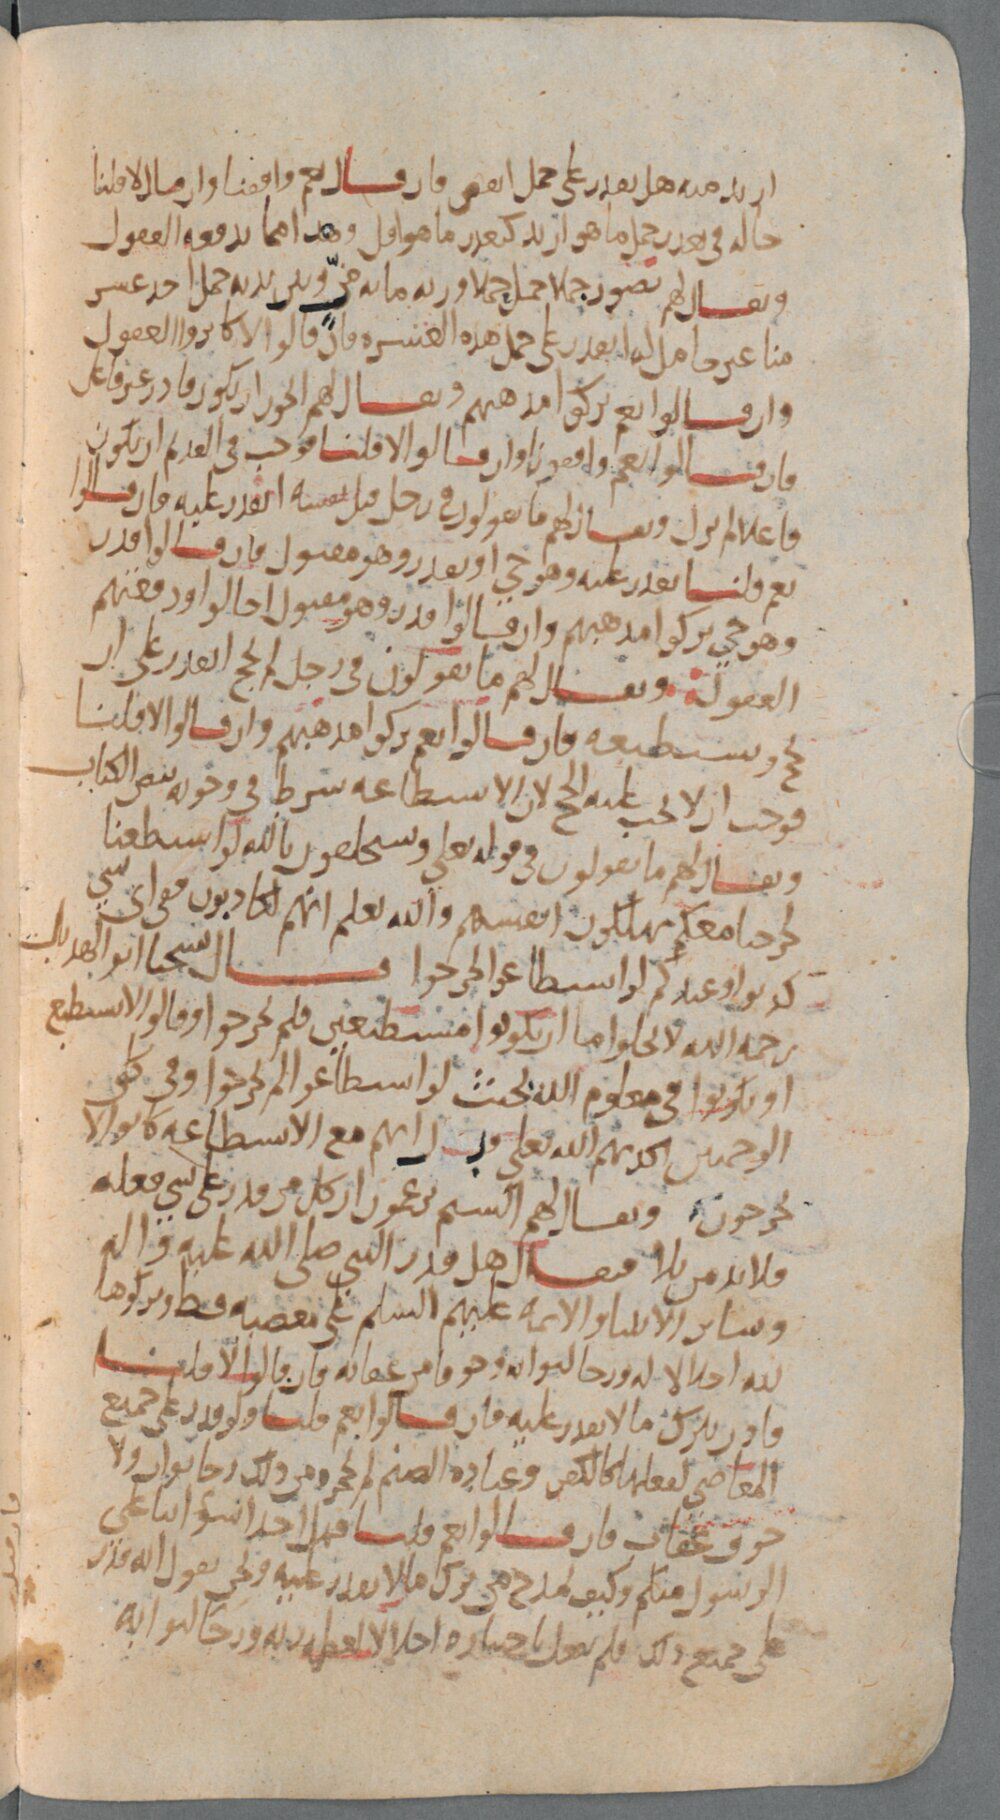 ازيد منه هل يقدر على حمل انقص فان قال نعم وافقنا وان قال لا قلنا
حاله في تعذر حمل ما هو ازيد كتعذر ما هو اقل وهذا مما تدفعه العقول
ويقال لهم تصور جملا حمل حملا وزنه مائه من وبين يديه حمل احد عشر
منا غير حامل له ايقدر على حمل هذه العشره فان قالوا لا كابروا العقول
وان قالوا نعم تركوا مذهبهم ويقال لهم ايجوز ان يكون قادر غير فاعل
فان قالوا نعم وافقونا وان قالوا لا قلنا فوجب في القديم ان يكون
فاعلا لم يزل ويقال لهم ما تقولون في رجل قتل نفسه ايقدر عليه فان قالوا
نعم قلنا يقدر عليه وهو حي او يقدر وهو مقتول فان قالوا قدر
وهو حي تركوا مذهبهم وان قالوا قدر وهو مقتول احالوا ودفعتهم
العقول ويقال لهم ما تقولون في رجل لم يحج ايقدر على ان
يحج ويستطيعه فان قالوا نعم تركوا مذهبهم وان قالوا لا قلنا
فوجب ان لا يجب عليه الحج لان الاستطاعه شرط في وجوبه بنص الكتاب
ويقال لهم ما تقولون في قوله تعلى وسيحلفون بالله لو استطعنا
لخرجنا معكم يهلكون انفسهم والله يعلم انهم لكاذبون ففي اي شي
كذبوا وعندكم لو استطاعوا لخرجوا قال شيخنا ابو الهذيل
رحمه الله لا يخلوا اما ان يكونوا مستطيعين فلم يخرجوا وقالوا لا نستطيع
او يكونوا في معلوم الله بحيث لو استطاعوا لم يخرجوا وفي كلى
الوجهين اكذبهم الله تعلى وبين انهم مع الاستطاعه كانوا لا
يخرجون ويقال لهم الستم تزعمون ان كل من قدر على شي فعله
فلابد من بلا فيقال هل قدر النبي صلى الله عليه واله
وسائر الانبيا والائمه عليهم السلم على معصيه قط وتركوها
لله اجلالا له ورجا لثوابه وخوفا من عقابه فان قالوا لا قلنا
فاذن يترك ما لا يقدر عليه فان قالوا نعم قلنا ولو قدر على جميع
المعاصي لفعلها كالكفر وعباده الصنم لم يحجزه من ذلك رجا ثواب ولا
خوف عقاب فان قالوا نعم قلنا فهل احد اسوا ثنا على
الرسول منكم وكيف يمدح من ترك ما لا يقدر عليه ونحن نقول انه قدر
على جميع ذلك فلم يفعل باختياره اجلالا لعظمه ربه ورجا لثوابه